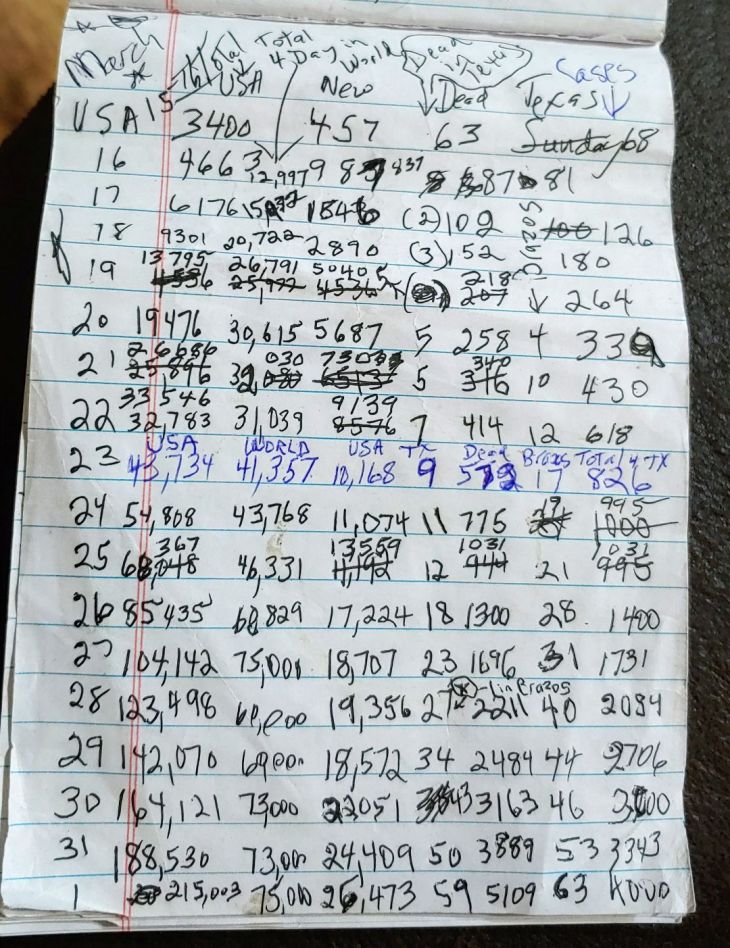 March
Total USA
Total 4 Day in World
New
Dead in Texas
Dead
Texas
Cases
USA 15 3400 457 63 Sunday 68
16 4663 12,997 837 87 81
17 6176 1846 (2) 102 126
18 9301 20,722 2890 (3) 152 Brazos 180
19 13,795 26,791 5040 218 264
20 19476 30,615 5687 5 258 4 339
21 26,686 5 340 10 430
22 33,546 31,039 9139 7 414 12 618
USA WORLD USA TX Dead Brazos Total in TX
23 43,734 41,357 10,168 9 17 826
24 54,808 43,768 11,074 11 775 995
25 46,331 13,559 12 1031 21 1031
26 85435 60,829 17,224 18 1300 28 1400
27 104,142 75,000 18,707 23 1696 31 1731
1 in Brazos
28 123,498 60,000 19,356 27 2211 40 2084
29 142,070 69000 18,572 34 2484 44 2706
30 164,121 73,000 22051 43 3163 46 3000
31 188,530 73,000 24,409 50 3889 53 3343
1 215,003 75,000 26,473 59 5109 63 4000